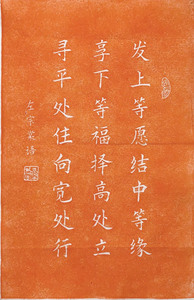 发上等愿结中等缘
享下等福择高处立
寻平处住向宽处行
左宗棠语